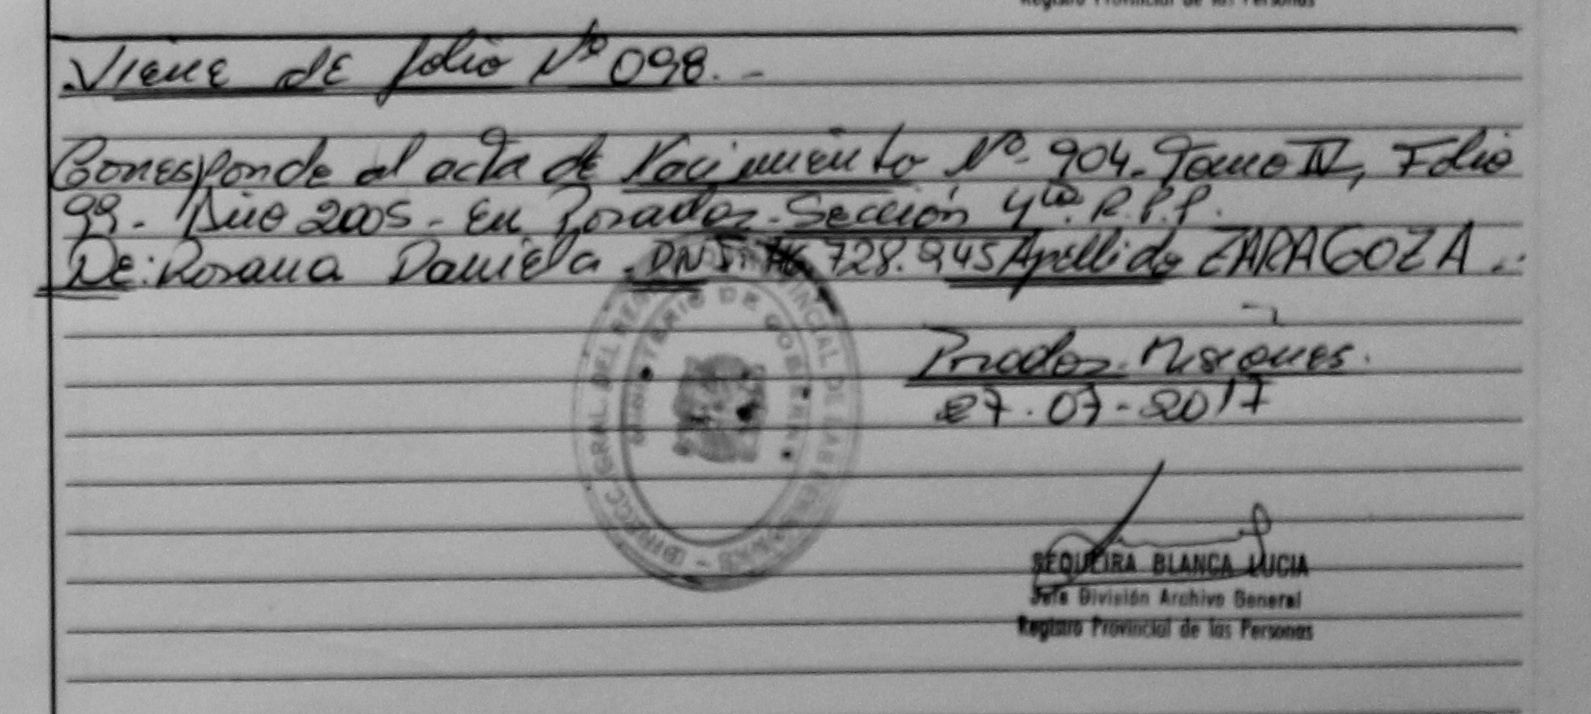 Registro Provincial de las Personas
Viene de folio Nº 098.-
Corresponde al acta de Nacimiento Nº 904. Tomo IV, Folio
99. Año 2005 - En Posadas. Sección 4ta. R.P.P.
De: Rosana Daniela. DNI 728.945 Apellido ZARAGOZA.
Posadas. Misiones.
27.07-2017
DIRECC GRAL DEL REG PROVINCIAL DE LAS PERSONAS
MINISTERIO DE GOBIERNO
SEQUEIRA BLANCA LUCIA
Jefe División Archivo General
Registro Provincial de las Personas